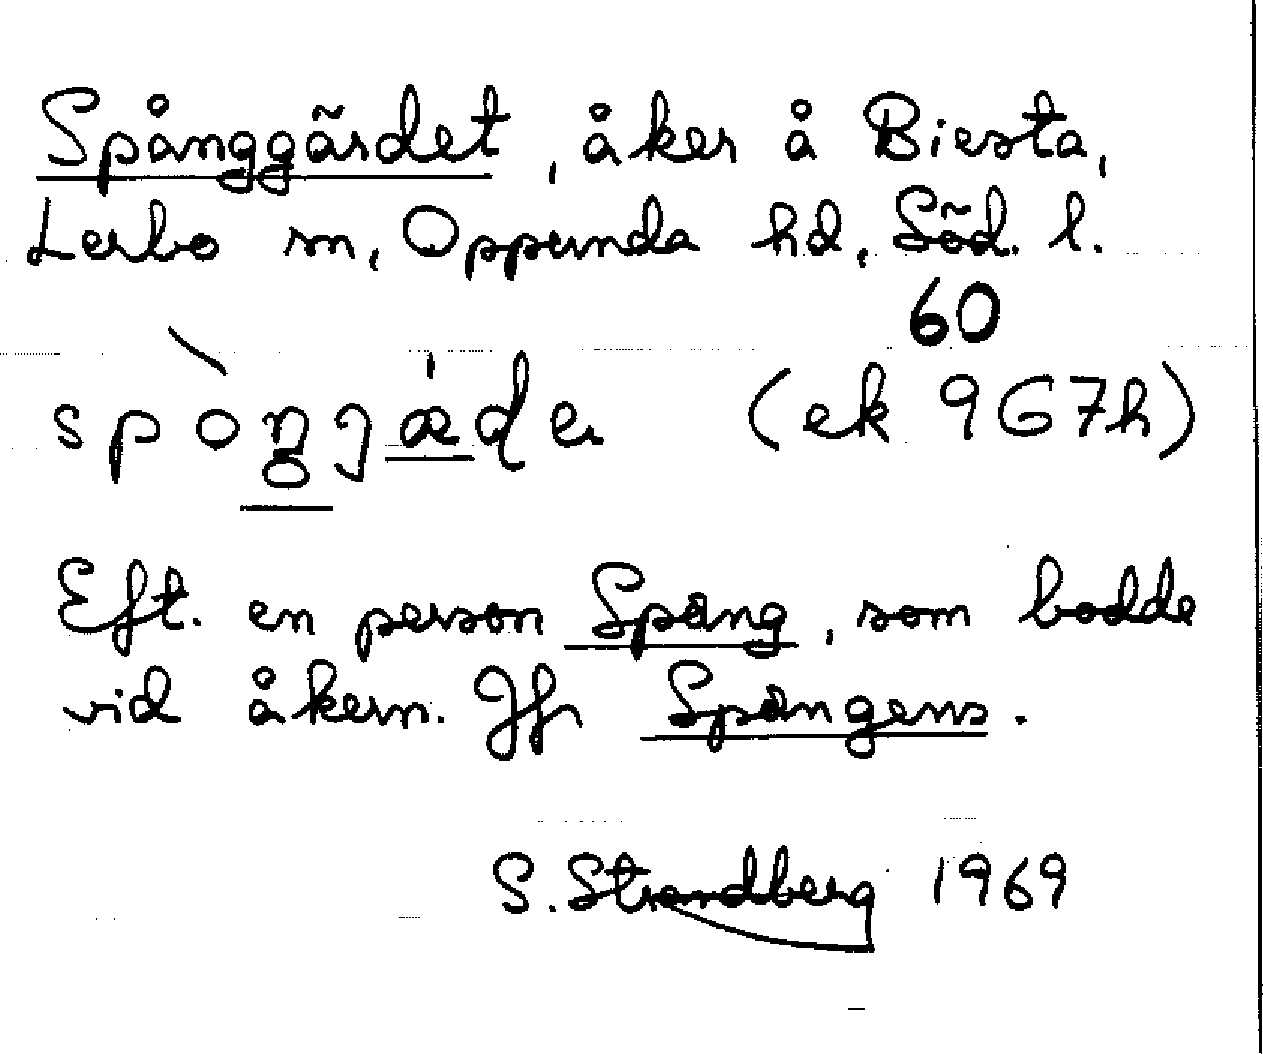 Spånggärdet, åker å Biesta,
Lerbo sn, Oppunda hd, Söd. l.
60
(ek 9G7h)
Eft. en person Spång, som bodde
vid åkern. Jfr Spångens.
S. Strandberg 1969